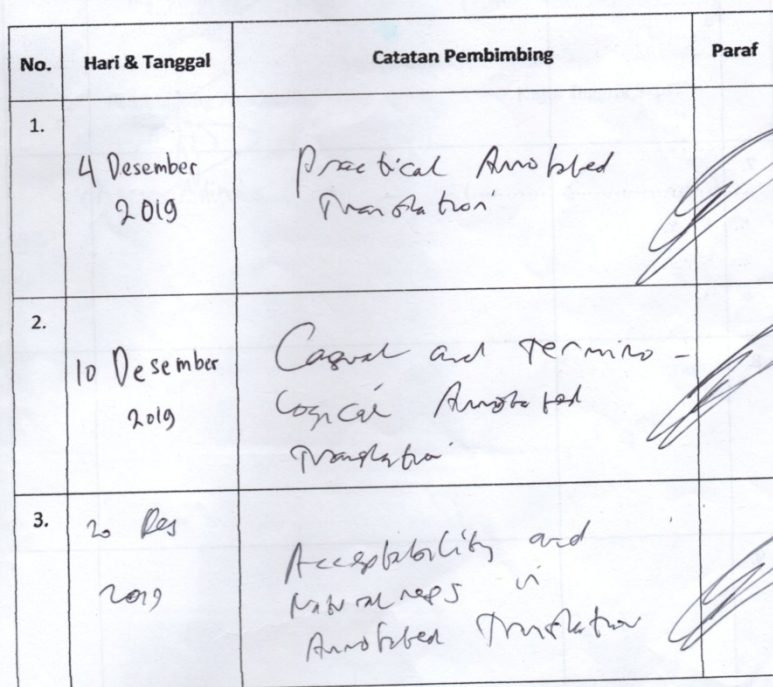 No. Hari & Tanggal Catatan Pembimbing Paraf
1.
4 Desember
2019
Practical Annotated
Translation
2.
10 Desember
2019
Casual and Termino-
logical Annotated
Translation
3.
20 Des
2019
Acceptability and
Naturalness in
Annotated Translation